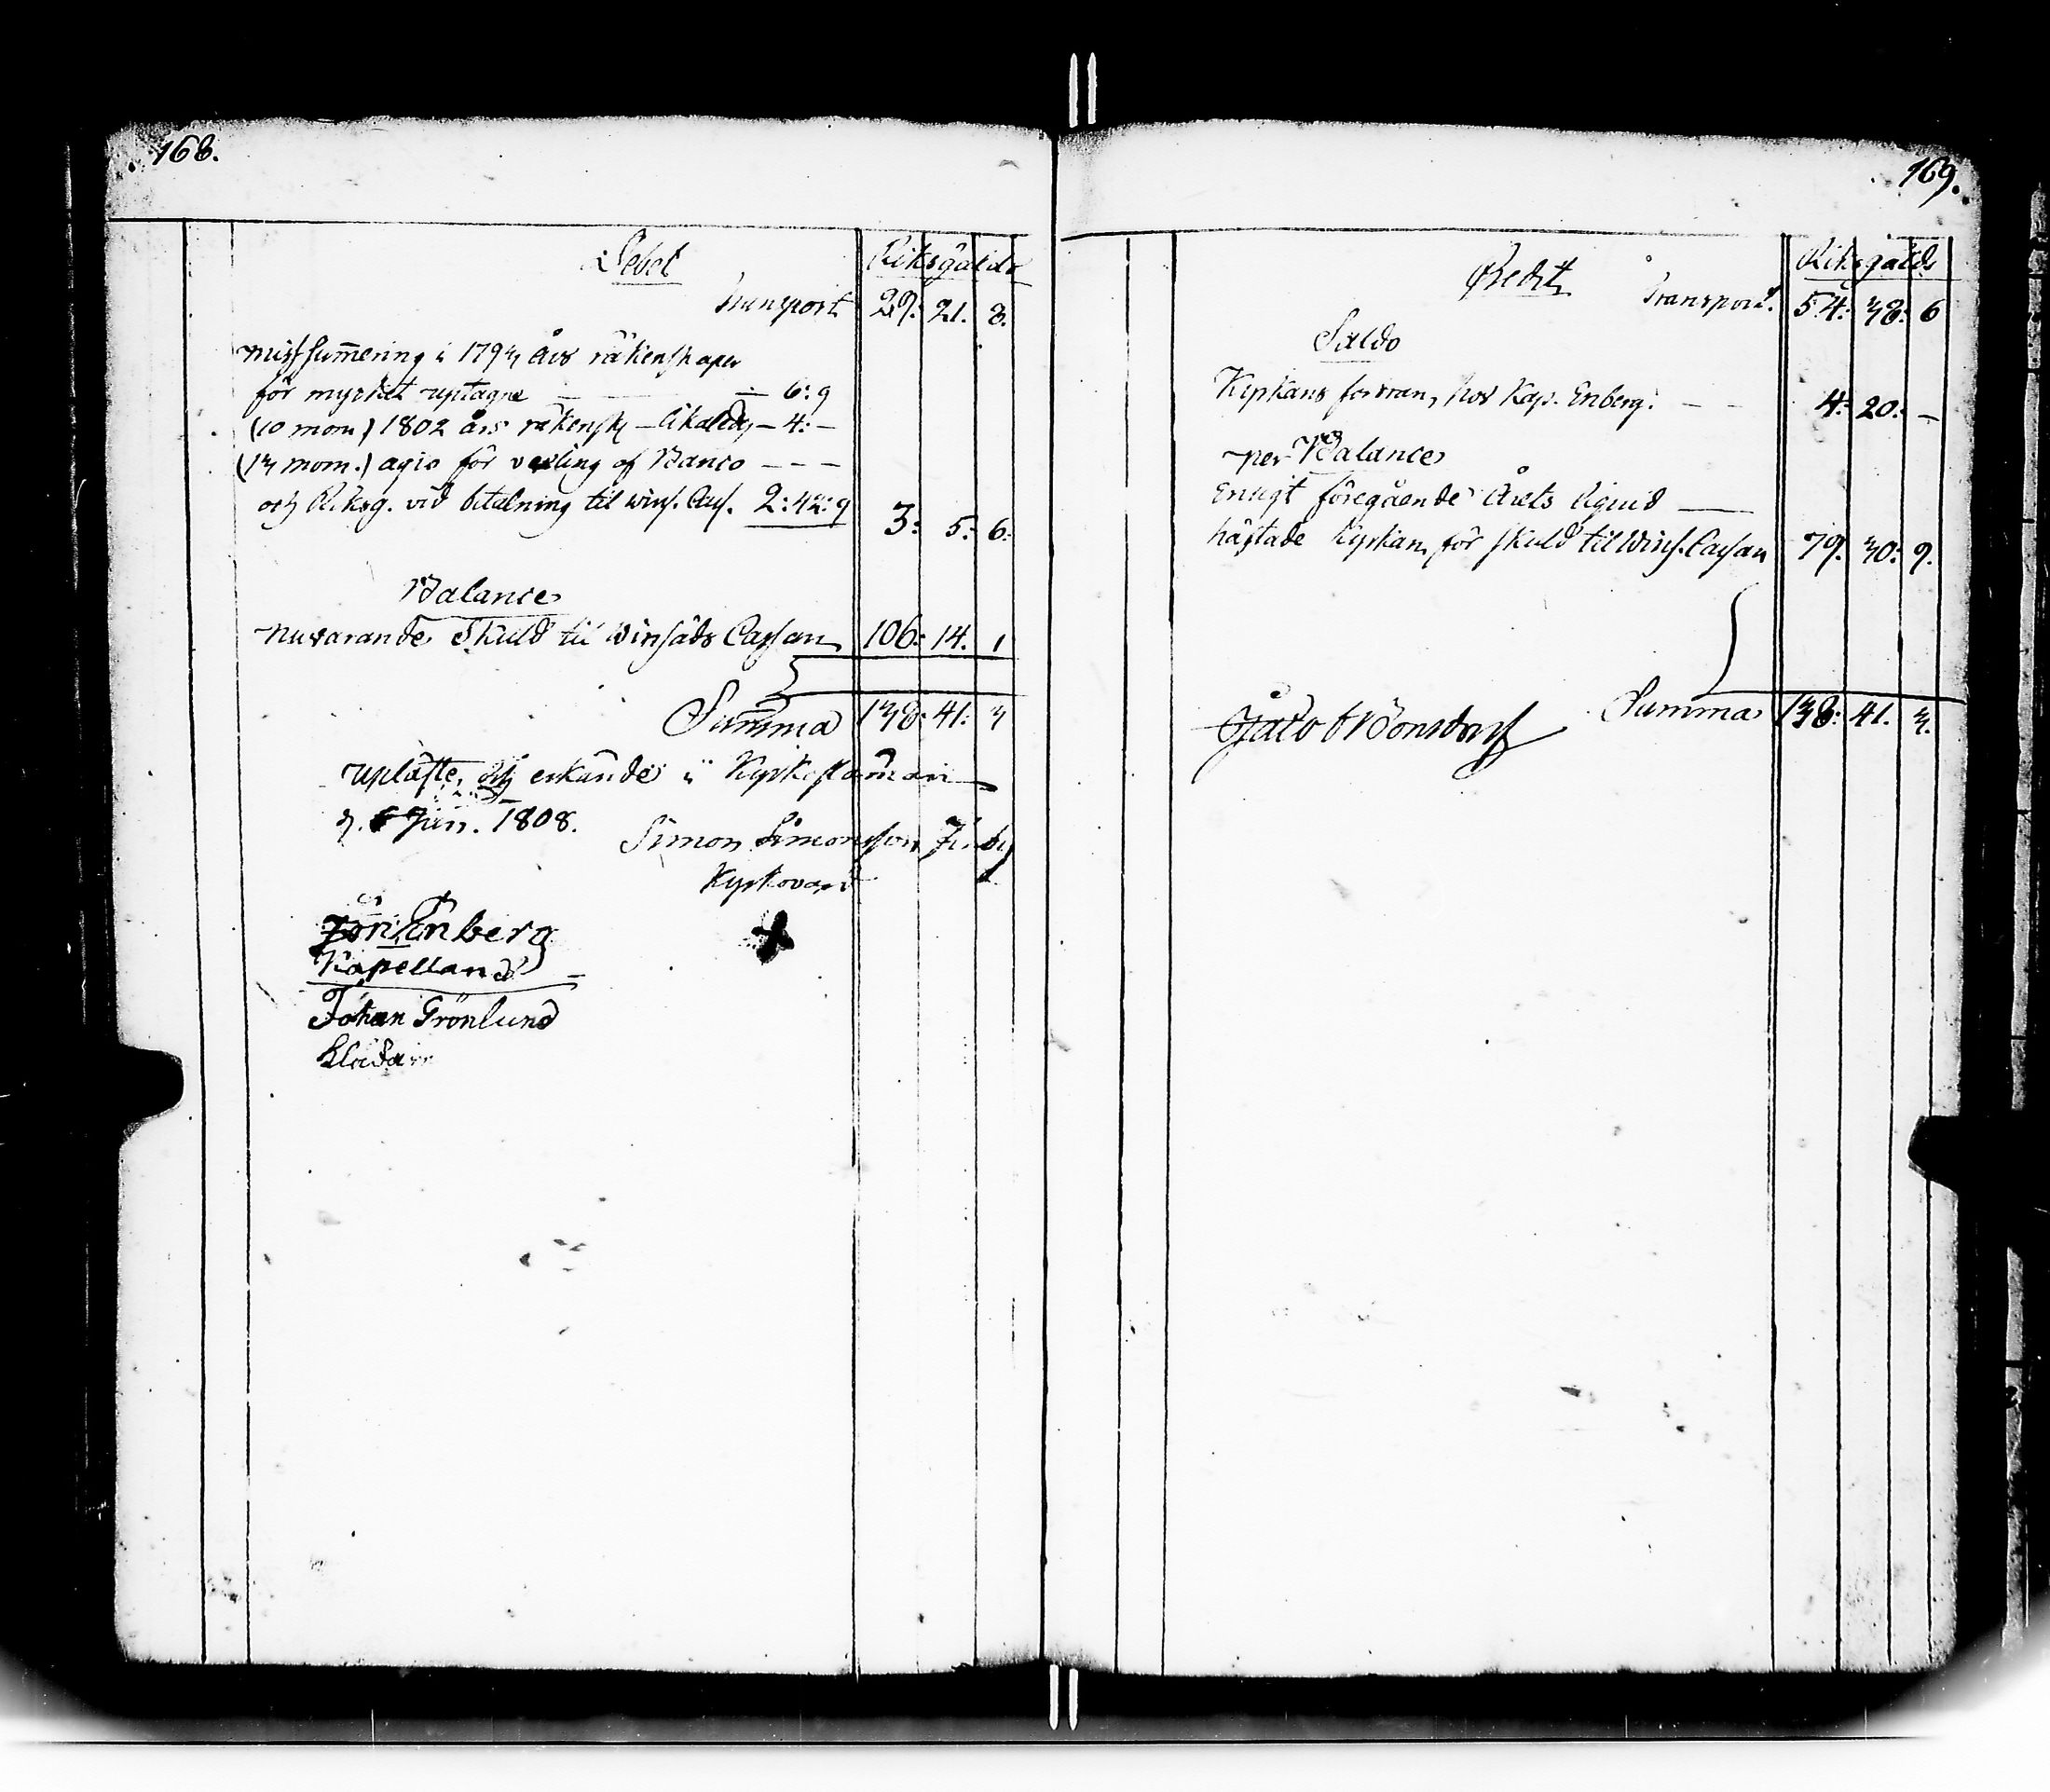 168.
Debet Riksgälds
Transport 29: 21. 8.
missumering i 1793 Års räkenskaper
för myrket uptagne — — 6: 9
(10 mom.) 1802 års räkensk — likaledes — 4: —
(13 mom.) agio för vexling af Banco — — —
och Riksg. vid betalning til Wins. Cass. 2: 42: 9 3: 5: 6:
Balance
nuvarande Skuld til Winsäds Cassan 106: 14. 1
Summa 138: 41: 3
upläste och erkände i Kyrkostämman
Jun. 1808.
Simon Simonsson
Kyrkovärd
Enberg
Kapellan
Johan Grönlund
169.
Credit Riksgälds
Transport. 54: 38: 6
Saldo
Kyrkans fordran hos Kap. Enberg. — — 4: 20: —
per Balance
Enligt föregående Årets liquid —
häftade Kyrkan för skuld til Wins. Cassan 79. 30: 9.
Summa 138: 41. 3.
Jacob Bonsdorff